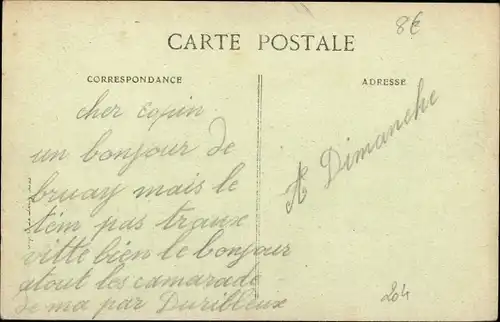 8€
CARTE POSTALE
CORRESPONDANCE
ADRESSE
cher copin
un bonjour de
bruay mais le
tem pas traux
vitte bien le bonjour
atout les camarade
de ma par Duribleux
A Dimanche
204